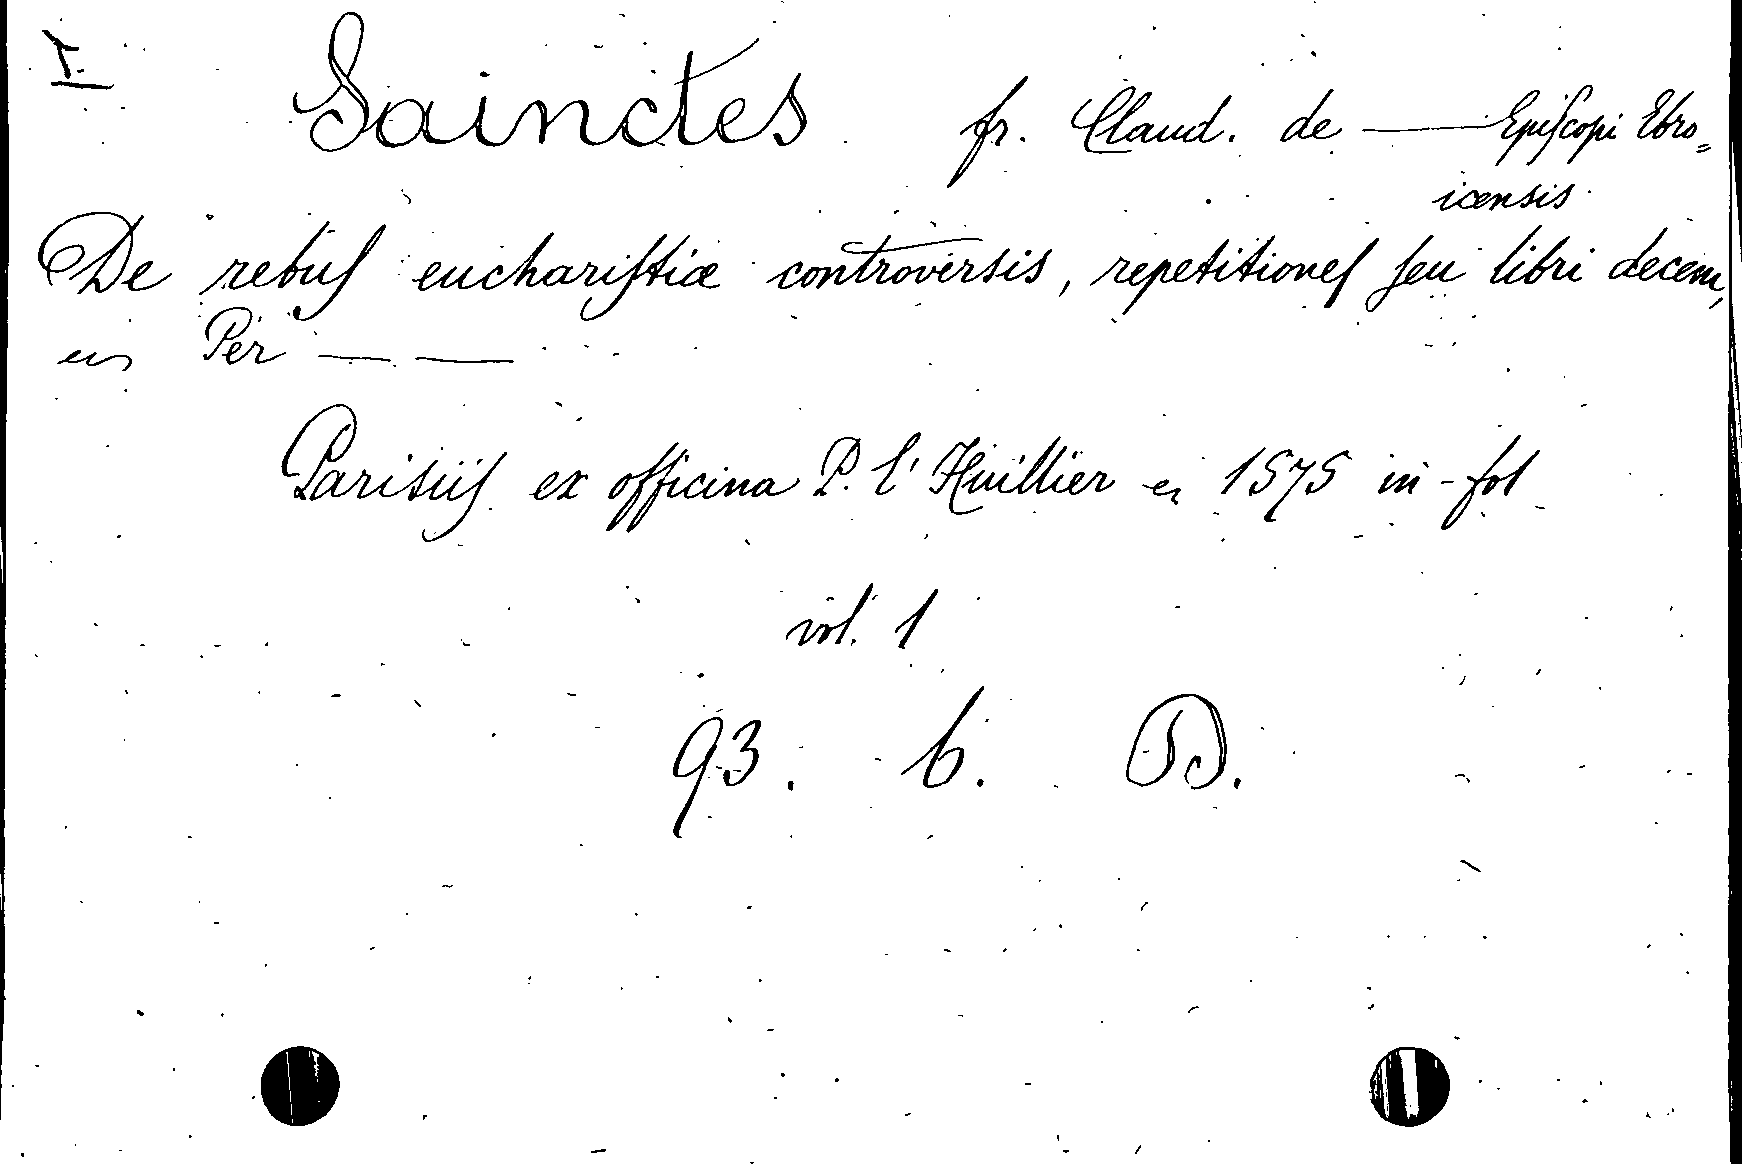 I.
Sainctes fr. Claud. de — Epiſcopi Ebro=
icensis
De rebuſ euchariſtiæ controversis, repetitioneſ ſeu libri decem,
Per — —
Parisiiſ ex officina P. l'Huillier 1575 in-fol
vol. 1
93. b. D.